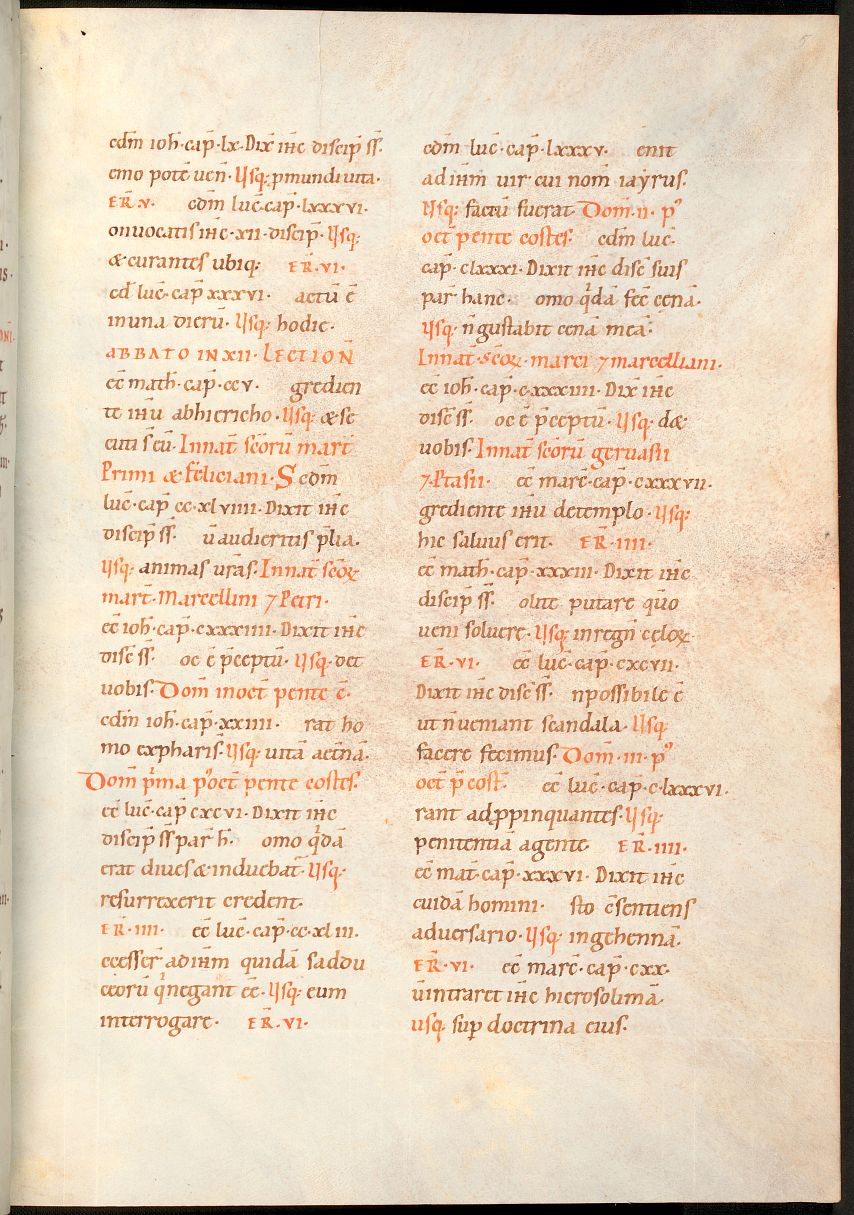 cdm̄ ioh̄·cap̄·lx·Dix̄ ih̄c discip̄ ss̄.
emo potē uen̄·Usq; ꝑmundi uita·
FER̄·V· cdm̄ luc̄·cap̄·lxxxvi·
onuocatis ih̄c·xii·discip̄·Usq;
& curantes ubiq; FER̄·VI·
cd̄ luc̄·cap̄ xxxvi· actū ē
in una dierū·Usq; hodie·
ABBATO IN XII·LECTION̄
ec̄ math̄·cap̄·ccv· gredien
te ih̄u abhiericho·Usq; & se
cuti s̄ eū·In nat̄ sc̄orū mart̄
Primi & feliciani·Scdm̄
luc̄·cap̄ cc·xlviiii·Dixit ih̄c
discip̄ ss̄· ū audieritis p̄lia·
Usq; animas ur̄as·In nat̄ sc̄oꝝ
mart̄·Marcellini ⁊ Petri·
ec̄ ioh̄·cap̄·cxxxiiii·Dixit ih̄c
disc̄ ss̄· oc ē p̄ceptū·Usq; det
uobis·Dom̄ in oct̄ pente c̄·
cdm̄ ioh̄·cap̄·xxiiii· rat ho
mo ex pharis̄·Usq; uitā aet̄nā·
Dom̄ p̄ma p᾽ oct̄ pente costes·
ec̄ luc̄·cap̄ cxcvi·Dixit ih̄c
discip̄ ss̄ par̄ h̄· omo q̄dā
erat diues & induebat̄·Usq;
resurrexerit credent·
FER̄·IIII· ec̄ luc̄·cap̄·cc·xliii·
ccesser̄ ad ih̄m quidā saddu
ceorū q̄ negant ēē·Usq; eum
interrogare· FER̄·VI·
cdm̄ luc̄·cap̄·lxxxv· enit
ad ih̄m uir cui nom̄ iaẏrus·
Usq; factū fuerat·Dom̄·ii·p᾽
oct̄ pente costes· cdm̄ luc̄·
cap̄·clxxxi·Dixit ih̄c disc̄ suis
par̄ hanc· omo q̄dā fec̄ cenā·
Usq; n̄ gustabit cenā meā·
In nat̄·sc̄oꝝ·marci ⁊ marcelliani·
ec̄ ioh̄·cap̄·cxxxiiii·Dix̄ ih̄c
disc̄ ss̄· oc ē p̄ceptū·Usq; d&
uobis·In nat̄ sc̄orū geruasii
⁊·Ptasii· ec̄ marc̄·cap̄·cxxxvii·
grediente ih̄u de templo·Usq;
hic saluus erit· FER̄·IIII·
ec̄ math̄·cap̄·xxxiii·Dixit ih̄c
discip̄ ss̄· olite putare quō
ueni soluere·Usq; in regn̄ celoꝝ·
FER̄·VI· ec̄ luc̄·cap̄·cxcvii·
Dixit ih̄c disc̄ ss̄· npossibile ē
ut n̄ ueniant scandala·Usq;
facere fecimus·Dom̄·iii·p᾽
oct̄ p̄ cost̄· ec̄ luc̄·cap̄·clxxxvi·
rant adꝓpinquantes·Usq;
penitentiā agente· FER̄·IIII·
ec̄ mat̄·cap̄·xxxvi·Dixit ih̄c
cuidā homini· sto c̄sentiens
aduersario·Usq; in gehennā·
FER̄·VI· ec̄ marc̄·cap̄·cxx·
ū intraret ih̄c hierosolimā·
usq; sup̄ doctrina eius·